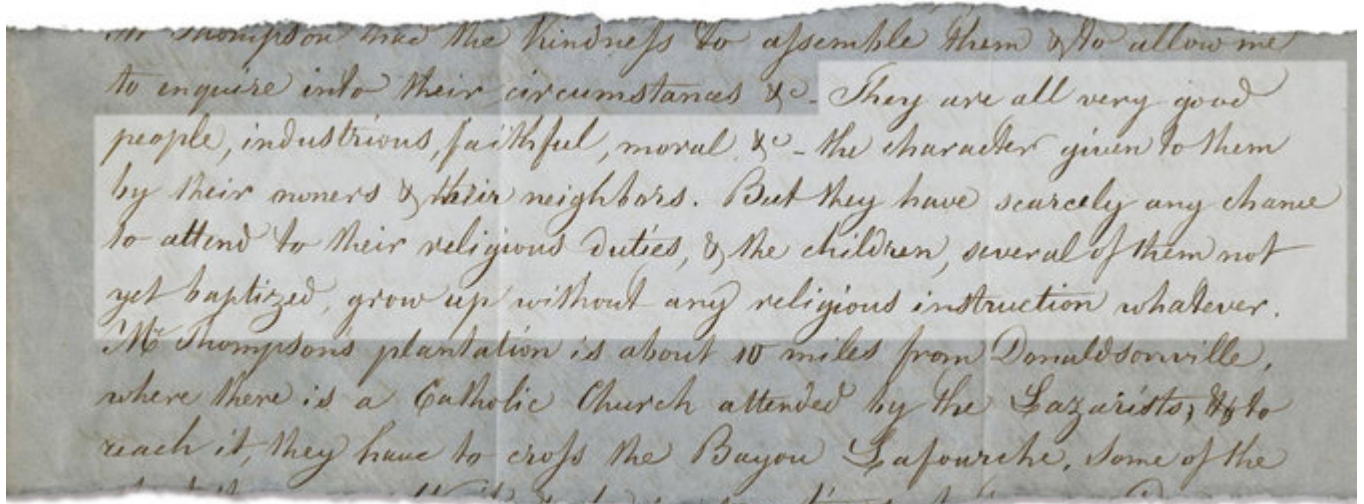 Mr Thompson had the kindness to assemble them & to allow me
to enquire into their circumstances &c - They are all very good
people, industrious, faithful, moral &c - the character given to them
by their owners & their neighbors. But they have scarcely any chance
to attend to their religious duties, & the children, several of them not
yet baptized, grow up without any religious instruction whatever.
Mr Thompson's plantation is about 10 miles from Donaldsonville,
where there is a Catholic Church attended by the Lazarists; & to
reach it, they have to cross the Bayou Lafourche. Some of the